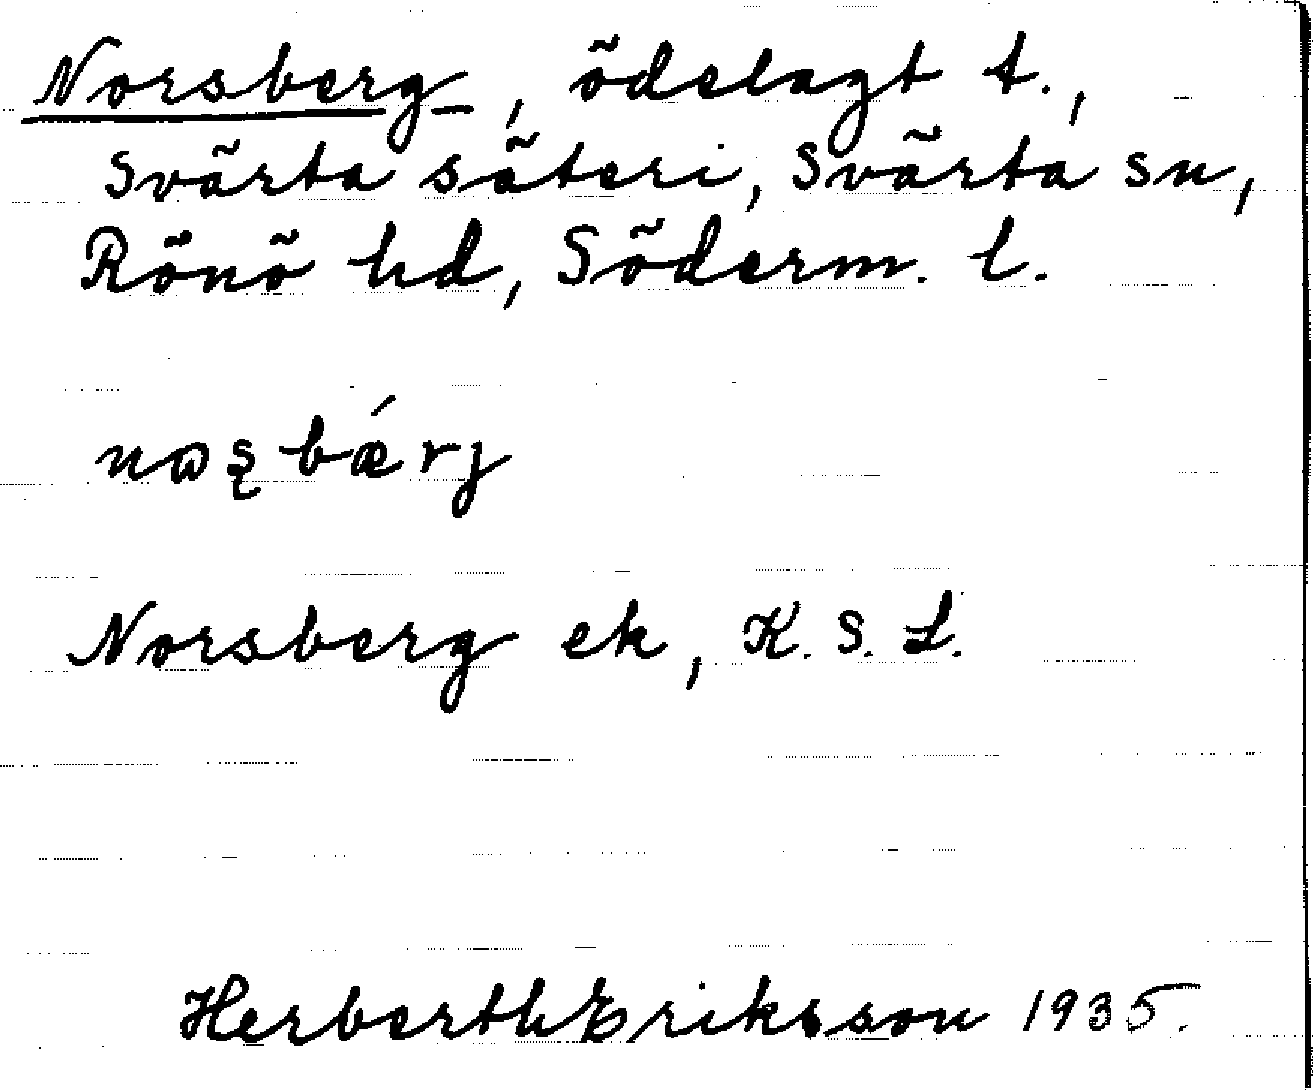 Norsberg, ödelagt t.,
Svärta säteri, Svärta sn,
Rönö hd, Söderm. l.
Norsberg ek, K. S. L.
Herberth Eriksson 1935.